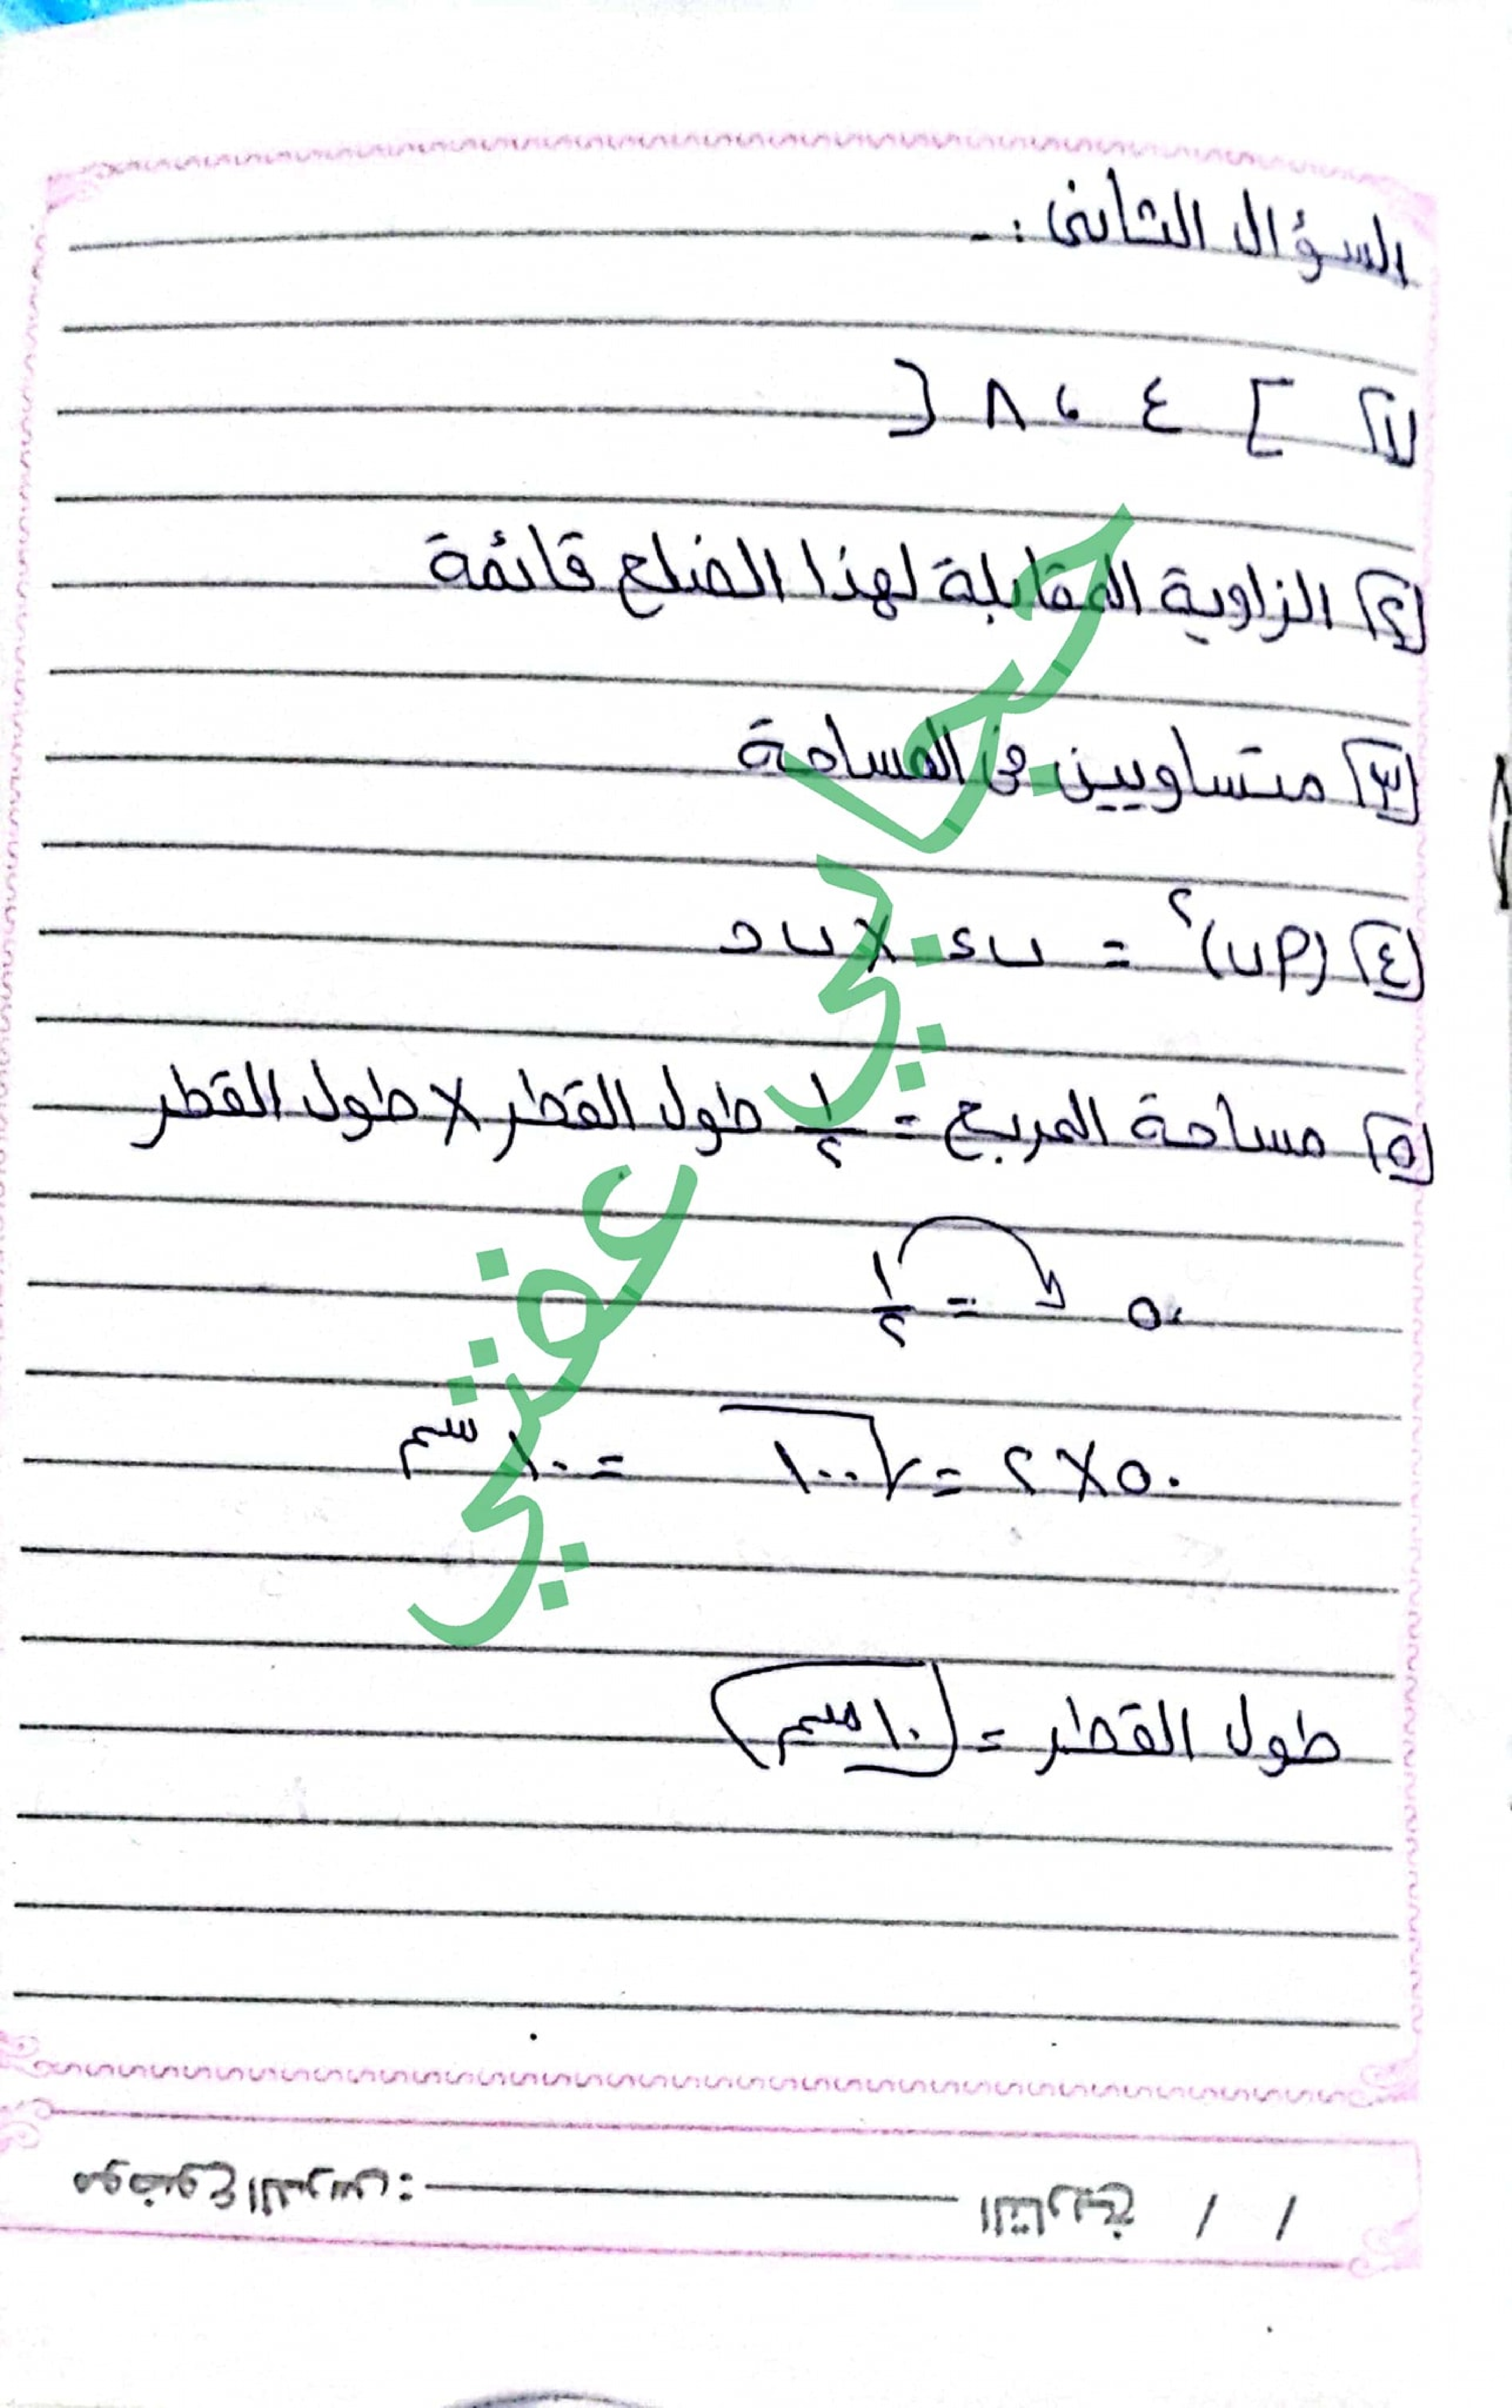 السؤال الثانى :-
١ ] ٤ ، ٨ [
٢ الزاوية المقابلة لهذا الضلع قائمة
٣ متساويين فى المساحة
٤ (أب)² = ب د × ب ح
٥ مساحة المربع = ١/٢ طول القطر × طول القطر
٥٠ = ١/٢
٥٠ × ٢ = √١٠٠ = ١٠ سم
طول القطر = ١٠ سم
عفتي
/ / التاريخ